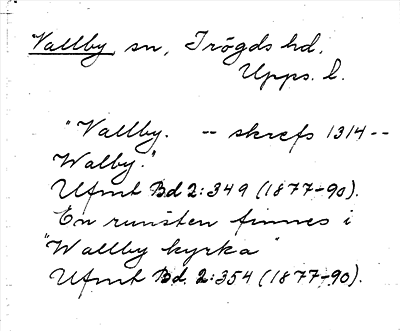 Vallby sn, Trögds hd.
Upps. l.
"Vallby. -- skrefs 1314 --
Walby."
Ufmt Bd 2:349 (1877-90).
En runsten finnes i
"Wallby kyrka"
Ufmt Bd. 2:354 (1877-90).